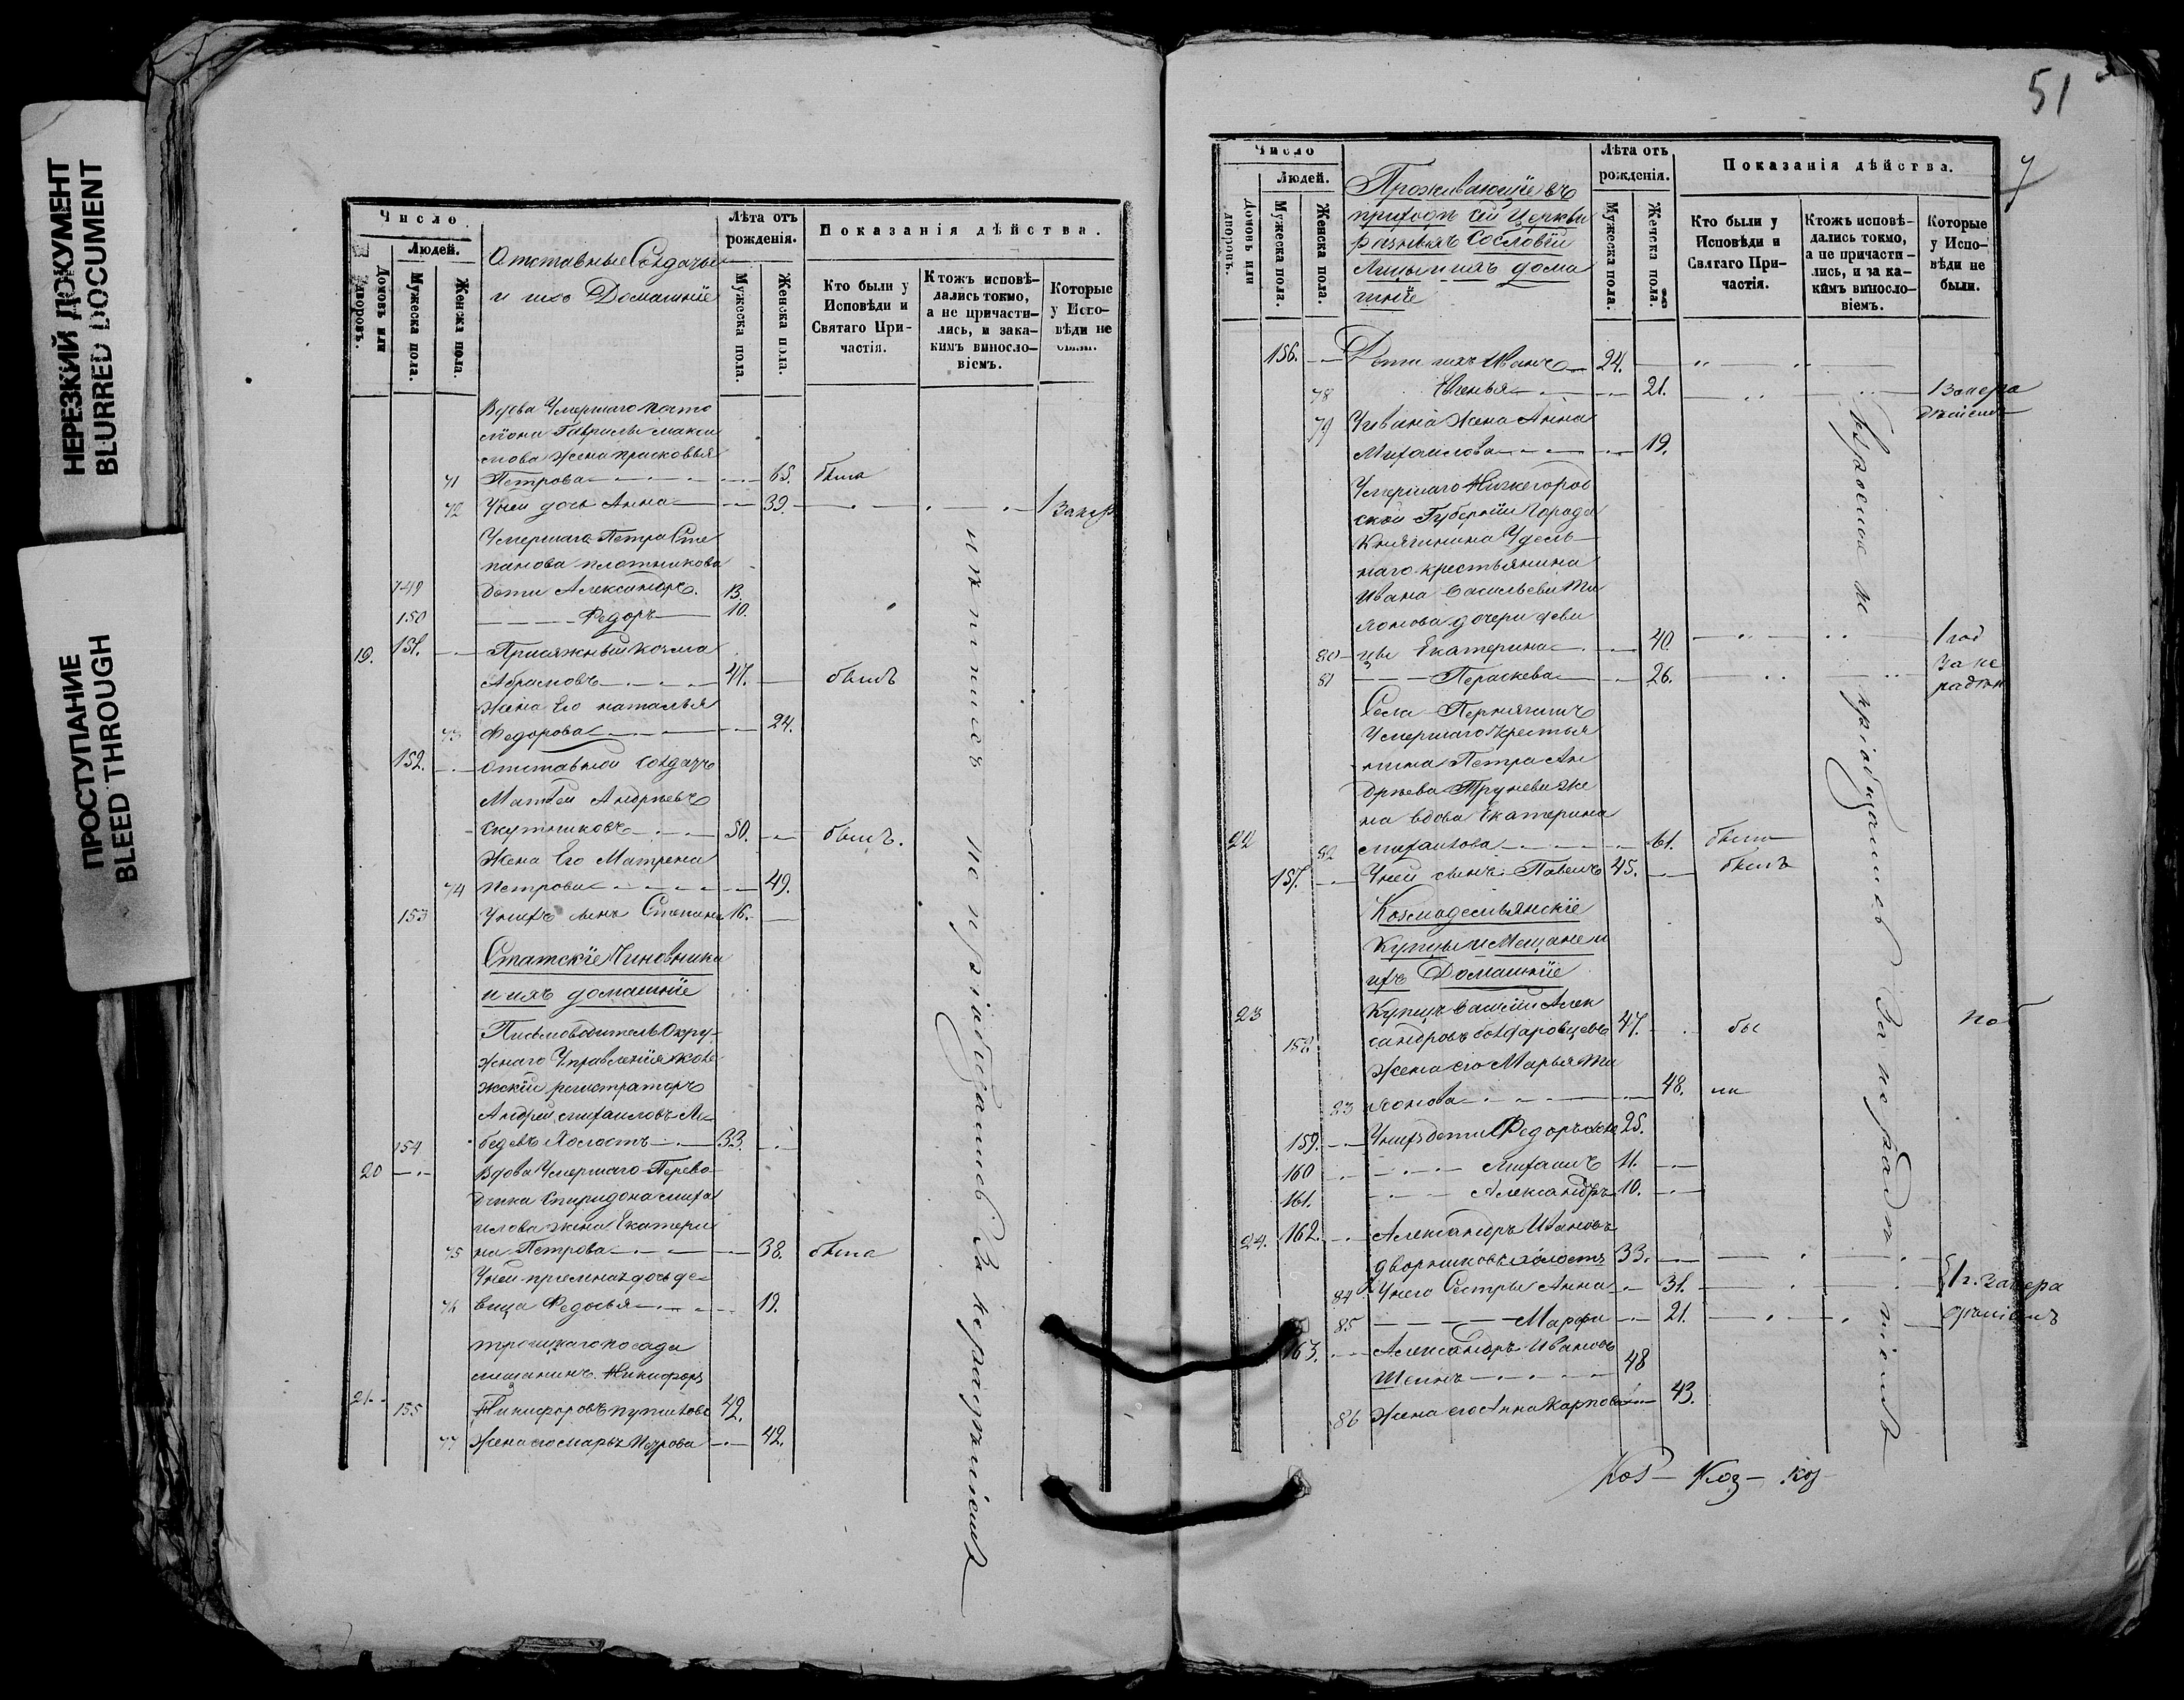 НЕРЕЗКИЙ ДОКУМЕНТ
BLURRED DOCUMENT
ПРОСТУПАНИЕ
BLEED THROUGH
Число
Людей.
Домовъ или дворовъ.
Мужеска пола.
Женска пола.
Отставные Солдаты
и ихъ Домашніе
Лѣта отъ рожденія.
Мужеска пола.
Женска пола.
Показанія дѣйства.
Кто были у Исповѣди и Святаго Причастія.
Ктожъ исповѣдались токмо, а не причастились, и за какимъ винословіемъ.
Которые у Исповѣди не были.
Вдова Умершаго
Гаврилы Макси
мова жена Прасковья
71 Петрова 65. была
72 У ней дочь Анна 39.
Умершаго Петра Сте
панова Плотникова
149 дети Александръ. 13.
150 Федоръ 10.
19. 151. Присяжный Козма
Абрамовъ 47. былъ
Жена Его Наталья
73 Федорова 24.
152. Отставной Солдатъ
Матвеи Андреевъ
Скутниковъ 50. былъ.
Жена Его Матрена
74 Петрова 49.
153 У нихъ сынъ Степанъ 16.
Статскіе Чиновники
и ихъ домашніе
Письмоводитель Окру-
жнаго Управленія Колле
жскій регистраторъ
Андрей Михаиловъ Ле
154 бедевъ Холостъ 33.
20 Вдова Умершаго Перево
дчика Спиридона Миха
илова жена Екатери
75 на Петрова 38. была
У ней приемная дочь де
76 вица Федосья 19.
Троицкаго посада
мещанинъ Никифоръ
21. 155 Никифоровъ 49.
77 Жена его Марья Петрова 42.
и не пріобщались За нерадѣніемъ
51
Число
Людей.
Домовъ или дворовъ.
Мужеска пола.
Женска пола.
Проживающіе въ
приходѣ сей Церкви
разныхъ Сословій
Лицы и ихъ дома
шніе
Лѣта отъ рожденія.
Мужеска пола.
Женска пола.
Показанія дѣйства.
Кто были у Исповѣди и Святаго Причастія.
Ктожъ исповѣдались токмо, а не причастились, и за какимъ винословіемъ.
Которые у Исповѣди не были.
156. Дети ихъ Иванъ 24.
78 21. 1 За нера
дѣніемъ
79 У Ивана жена Анна
Михаилова 19.
Умершаго Нижегород
ской Губерніи Города
Княгинина Удель
наго крестьянина
Ивана Васильева Ти
хонова дочери деви
80 цы Екатерина 40. 1 год
81 Параскева 26. За не
радѣн
Села
Умершаго Крестья
нина Петра Ан
дреева Трунева же
на вдова Екатерина
22 82 Михаилова 61. была
157. У ней сынъ Павелъ 45. былъ
Козмадемьянскіе
Купцы и Мещане и
ихъ Домашніе
23 Купецъ Василій Алек
158. сандровъ 47. бы
Жена его Марья Ти
83 хонова 48. ли
159. У нихъ дети Федоръ 25.
160 Михаилъ 11.
161. Александръ 10.
24. 162. Александръ Ивановъ
Дворниковъ холостъ 33.
84 У него Сестры Анна 31. 1 г. За нера
85 Марфа 21. дѣніемъ
163. Александръ Ивановъ
Шеинъ 48
86 Жена его Анна Карпова 43.
и не пріобщались За нерадѣніемъ